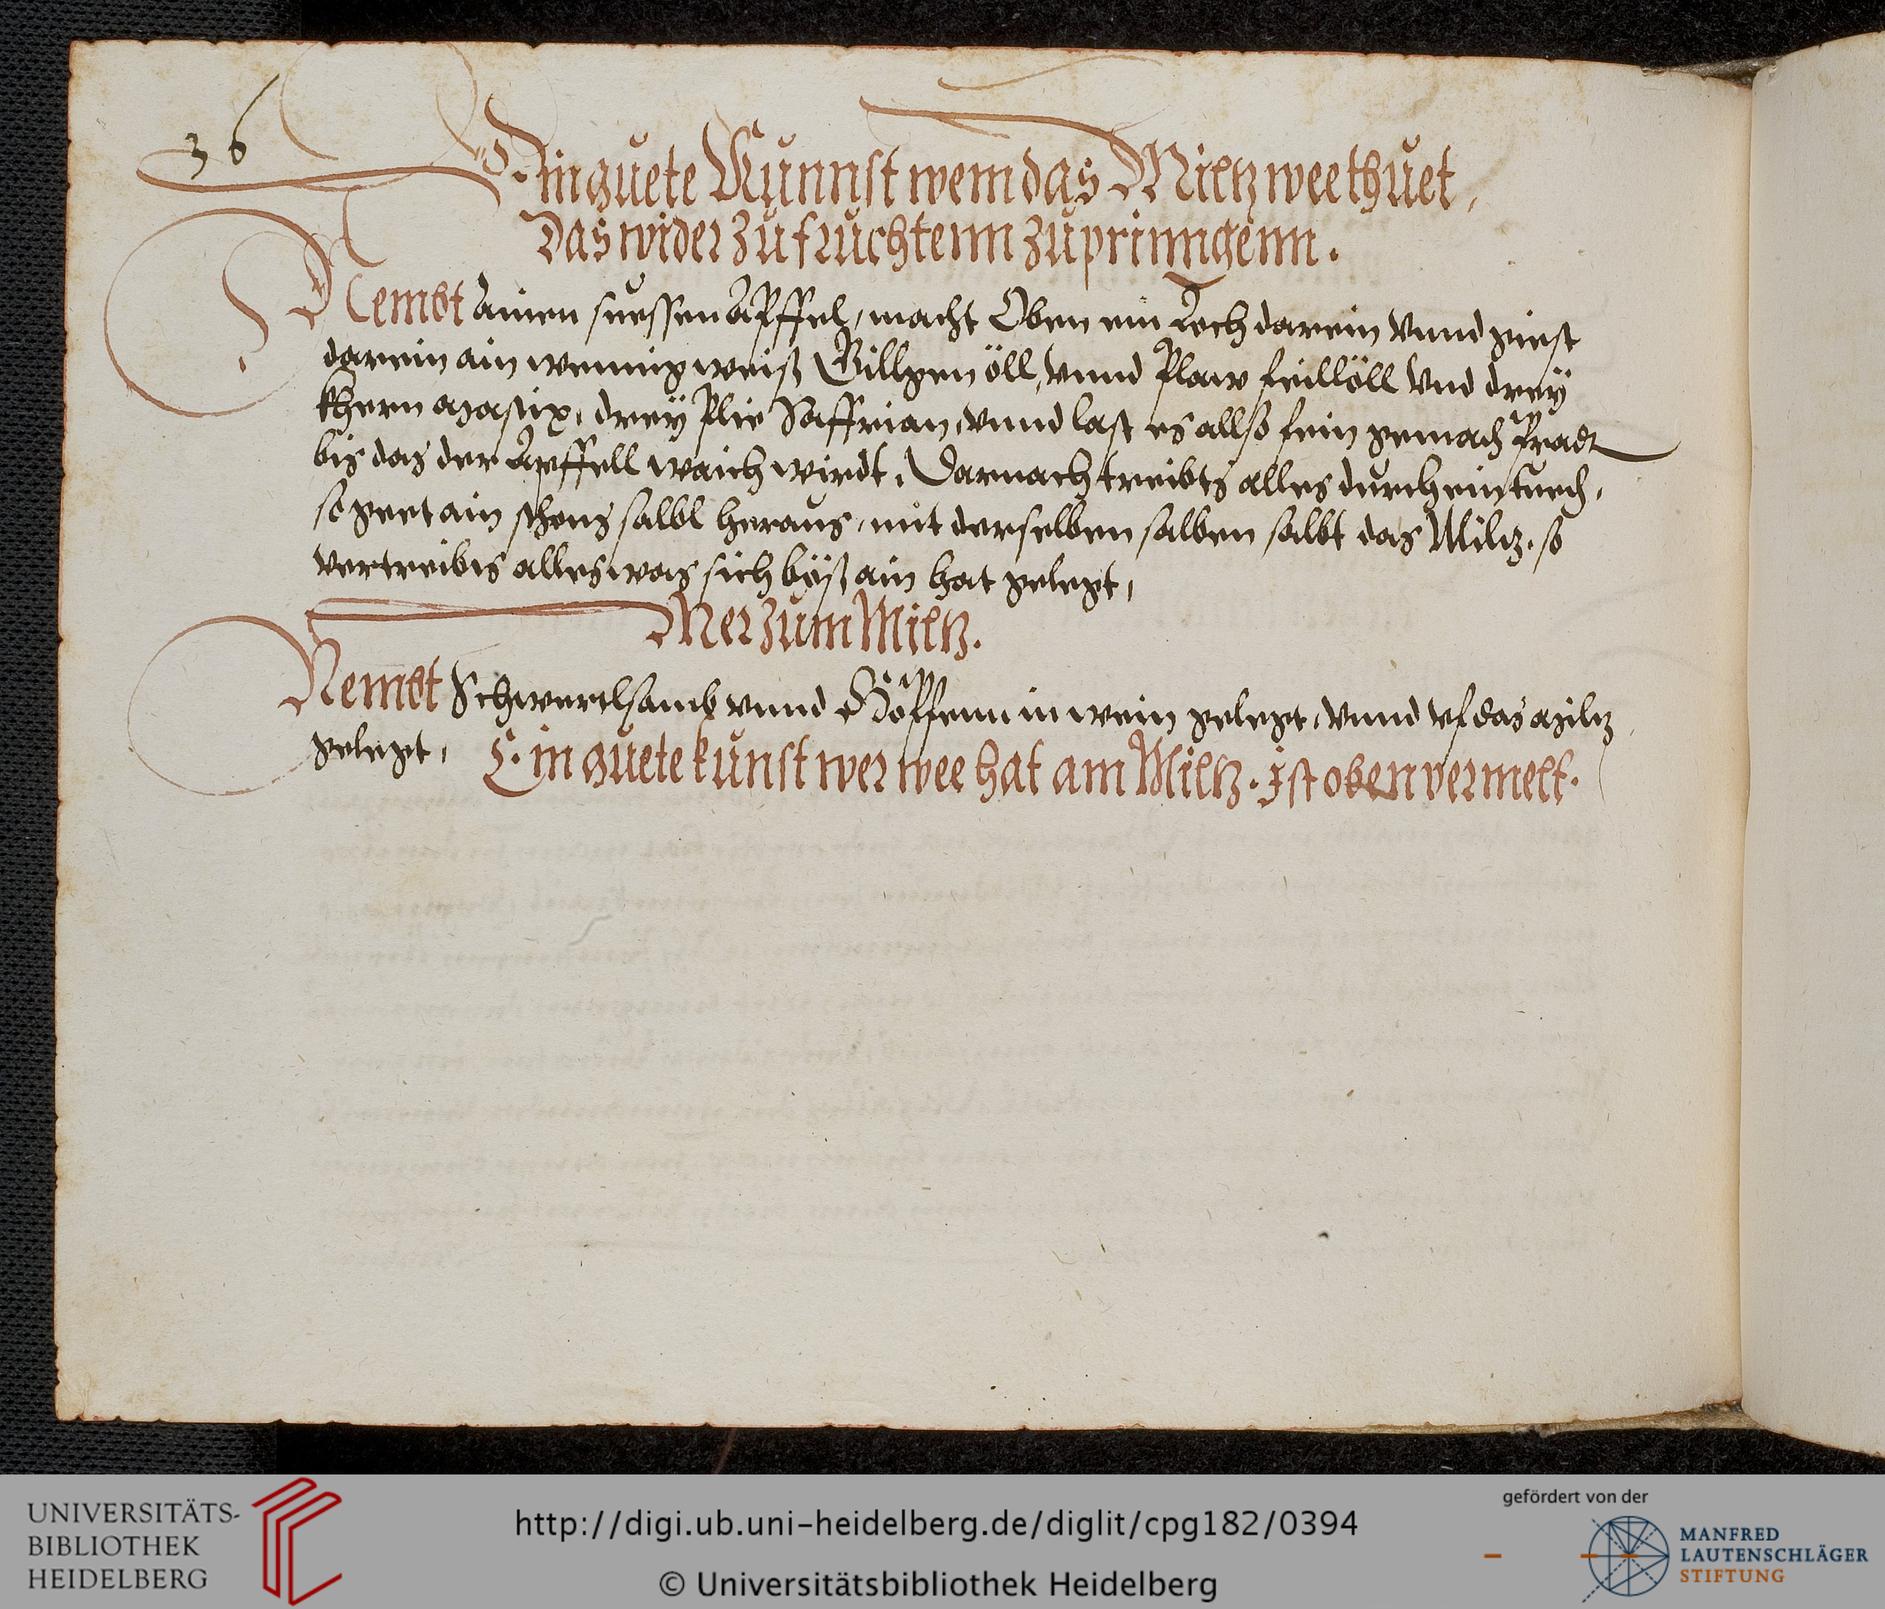 36
Ein guete Kunnst wem das Miltz wee thuet,
Das wider zu fruchtenn zu prinngenn.
Nembt ainen suessen Apffel, macht Oben ein Loch darein vnnd giest
darein ain wennig weiß Gillgen öll, vnnd plaw feillöll vnd drey
khern mastix, drey plie Saffrian, vnnd last es allso fein gemach pradt
bis das der Apffell waich wirdt, Darnach treibts alles durch ein tuech,
so geet ain schons salbl heraus, mit derselben salben salbt das Miltz, so
vertreibts alles was sich böß ain hat gelegt,
Mer zum Miltz.
Nembt Schwertlsamb vnnd Höpffenn in wein gelegt, vnnd vf das Miltz
gelegt, Ein guete kunst wer wee hat am Miltz. Ist oben vermelt.
UNIVERSITÄTS-
BIBLIOTHEK
HEIDELBERG
http://digi.ub.uni-heidelberg.de/diglit/cpg182/0394
© Universitätsbibliothek Heidelberg
gefördert von der
MANFRED
LAUTENSCHLÄGER
STIFTUNG